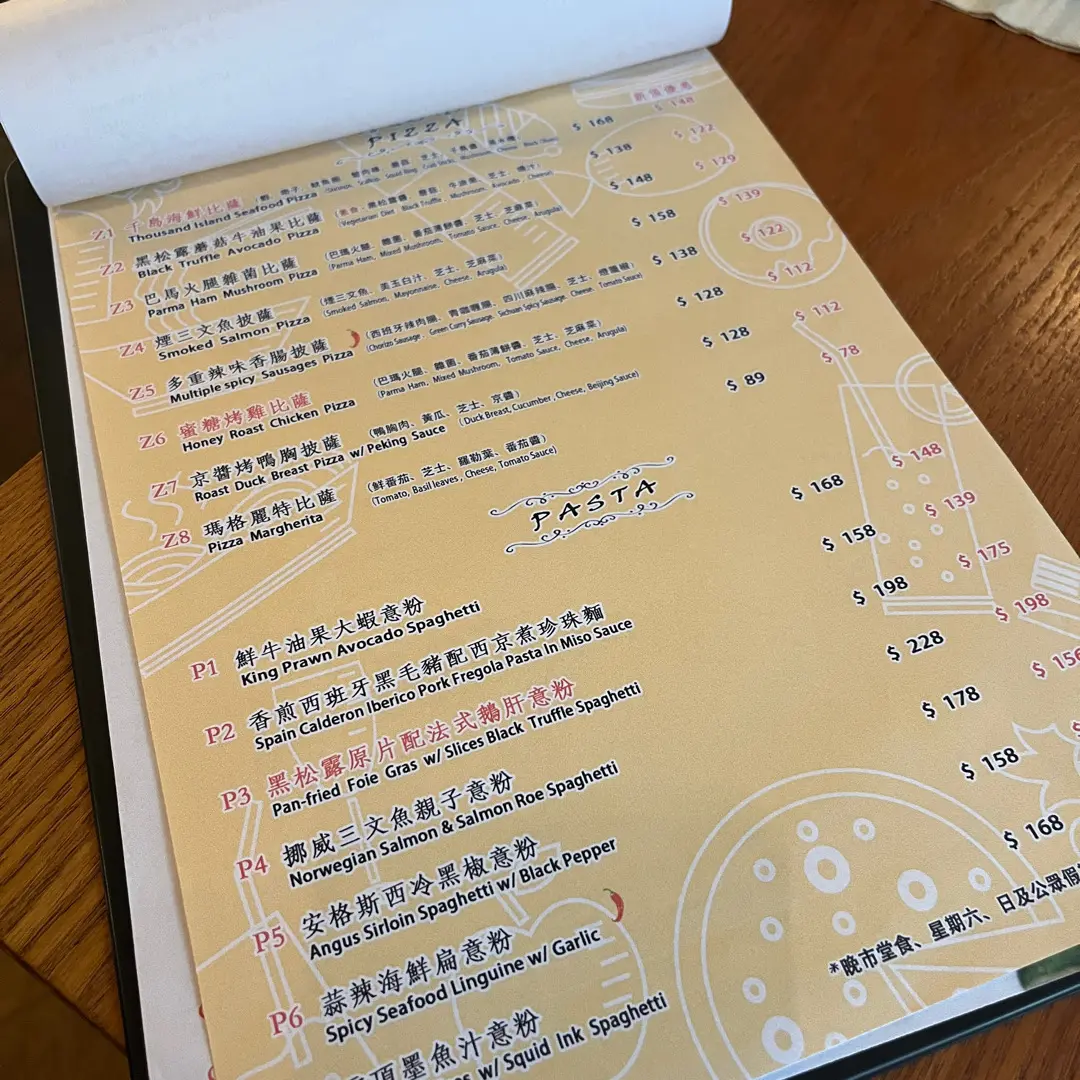 PIZZA
Z1 千島海鮮比薩 $ 168 $ 148
Thousand Island Seafood Pizza
Z2 黑松露蘑菇牛油果比薩 (素食、黑松露醬、蘑菇、牛油果、芝士、燒汁) $ 138 $ 122
Black Truffle Avocado Pizza (Vegetarian Diet, Black Truffle, Mushroom, Avocado, Cheese)
Z3 巴馬火腿雜菌比薩 (巴瑪火腿、雜菌、番茄薄餅醬、芝士、芝麻菜) $ 148 $ 129
Parma Ham Mushroom Pizza (Parma Ham, Mixed Mushroom, Tomato Sauce, Cheese, Arugula)
Z4 煙三文魚披薩 (煙三文魚、美玉白汁、芝士、芝麻菜) $ 158 $ 139
Smoked Salmon Pizza (Smoked Salmon, Mayonnaise, Cheese, Arugula)
Z5 多重辣味香腸披薩 (西班牙辣肉腸、青咖喱腸、四川麻辣腸、芝士、燈籠椒) $ 138 $ 122
Multiple spicy Sausages Pizza (Chorizo Sausage, Green Curry Sausage, Sichuan Spicy Sausage, Cheese, Tomato Sauce)
Z6 蜜糖烤雞比薩 (巴瑪火腿、雜菌、番茄薄餅醬、芝士、芝麻菜) $ 128 $ 112
Honey Roast Chicken Pizza (Parma Ham, Mixed Mushroom, Tomato Sauce, Cheese, Arugula)
Z7 京醬烤鴨胸披薩 (鴨胸肉、黃瓜、芝士、京醬) $ 128 $ 112
Roast Duck Breast Pizza w/ Peking Sauce (Duck Breast, Cucumber, Cheese, Beijing Sauce)
Z8 瑪格麗特比薩 (鮮番茄、芝士、羅勒葉、番茄醬) $ 89 $ 78
Pizza Margherita (Tomato, Basil leaves, Cheese, Tomato Sauce)
PASTA
P1 鮮牛油果大蝦意粉 $ 168 $ 148
King Prawn Avocado Spaghetti
P2 香煎西班牙黑毛豬配西京煮珍珠麵 $ 158 $ 139
Spain Calderon Iberico Pork Fregola Pasta In Miso Sauce
P3 黑松露原片配法式鵝肝意粉 $ 198 $ 175
Pan-fried Foie Gras w/ Slices Black Truffle Spaghetti
P4 挪威三文魚親子意粉 $ 228 $ 198
Norwegian Salmon & Salmon Roe Spaghetti
P5 安格斯西冷黑椒意粉 $ 178 $ 156
Angus Sirloin Spaghetti w/ Black Pepper
P6 蒜辣海鮮扁意粉 $ 158
Spicy Seafood Linguine w/ Garlic
頂墨魚汁意粉 $ 168
w/ Squid Ink Spaghetti
*晚市堂食、星期六、日及公眾假